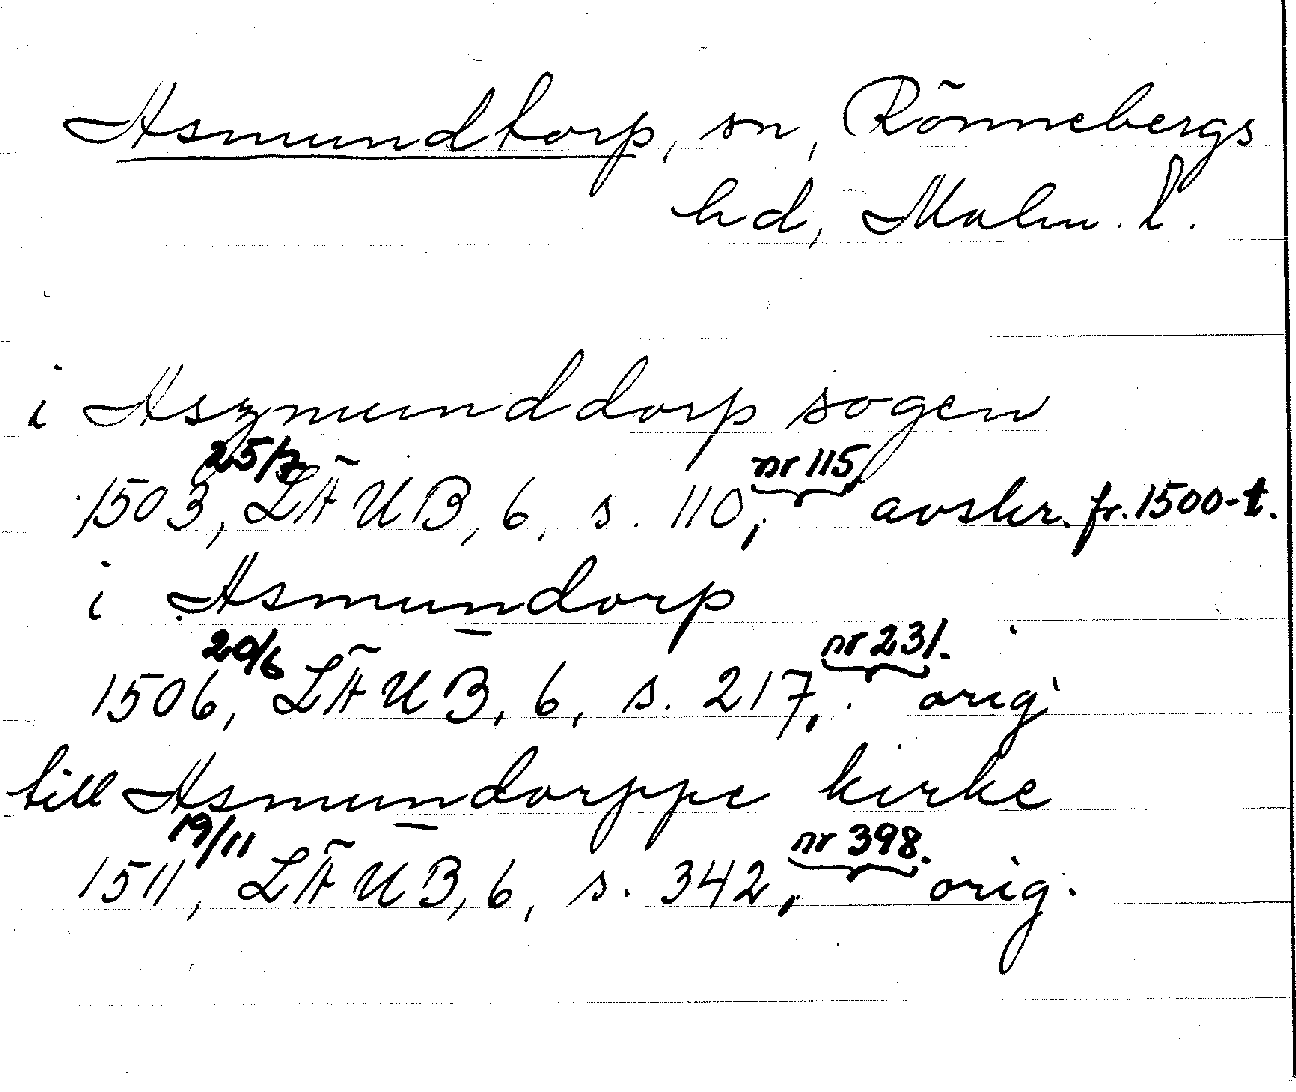 Asmundtorp, sn, Rönnebergs
hd, Malm. l.
i Aszmunddorp sogen
1503 25/7, LÄUB, 6, s. 110, nr 115, avskr. fr. 1500-t.
i Asmundorp
1506 20/6, LÄUB, 6, s. 217, nr 231. orig
till Asmundorppe kirke
1511 19/11, LÄUB, 6, s. 342, nr 398. orig.